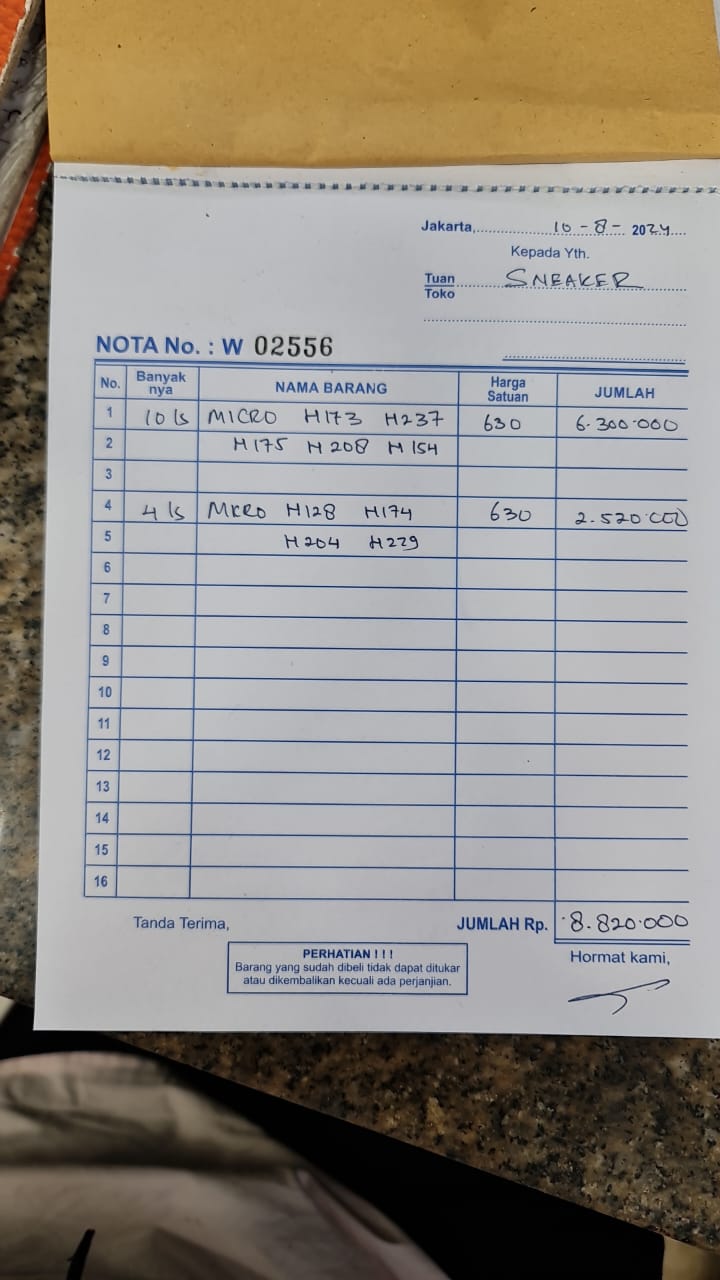 Jakarta, 10 - 8 - 2024
Kepada Yth.
Tuan SNEAKER
Toko
NOTA No. : W 02556
No. Banyak nya NAMA BARANG Harga Satuan JUMLAH
1 10 ls MICRO H173 H237 630 6.300.000
2 H175 H208 H154
3
4 4 ls MICRO H128 H174 630 2.520.000
5 H204 H229
6
7
8
9
10
11
12
13
14
15
16
Tanda Terima, JUMLAH Rp. 8.820.000
PERHATIAN ! ! !
Barang yang sudah dibeli tidak dapat ditukar
atau dikembalikan kecuali ada perjanjian.
Hormat kami,